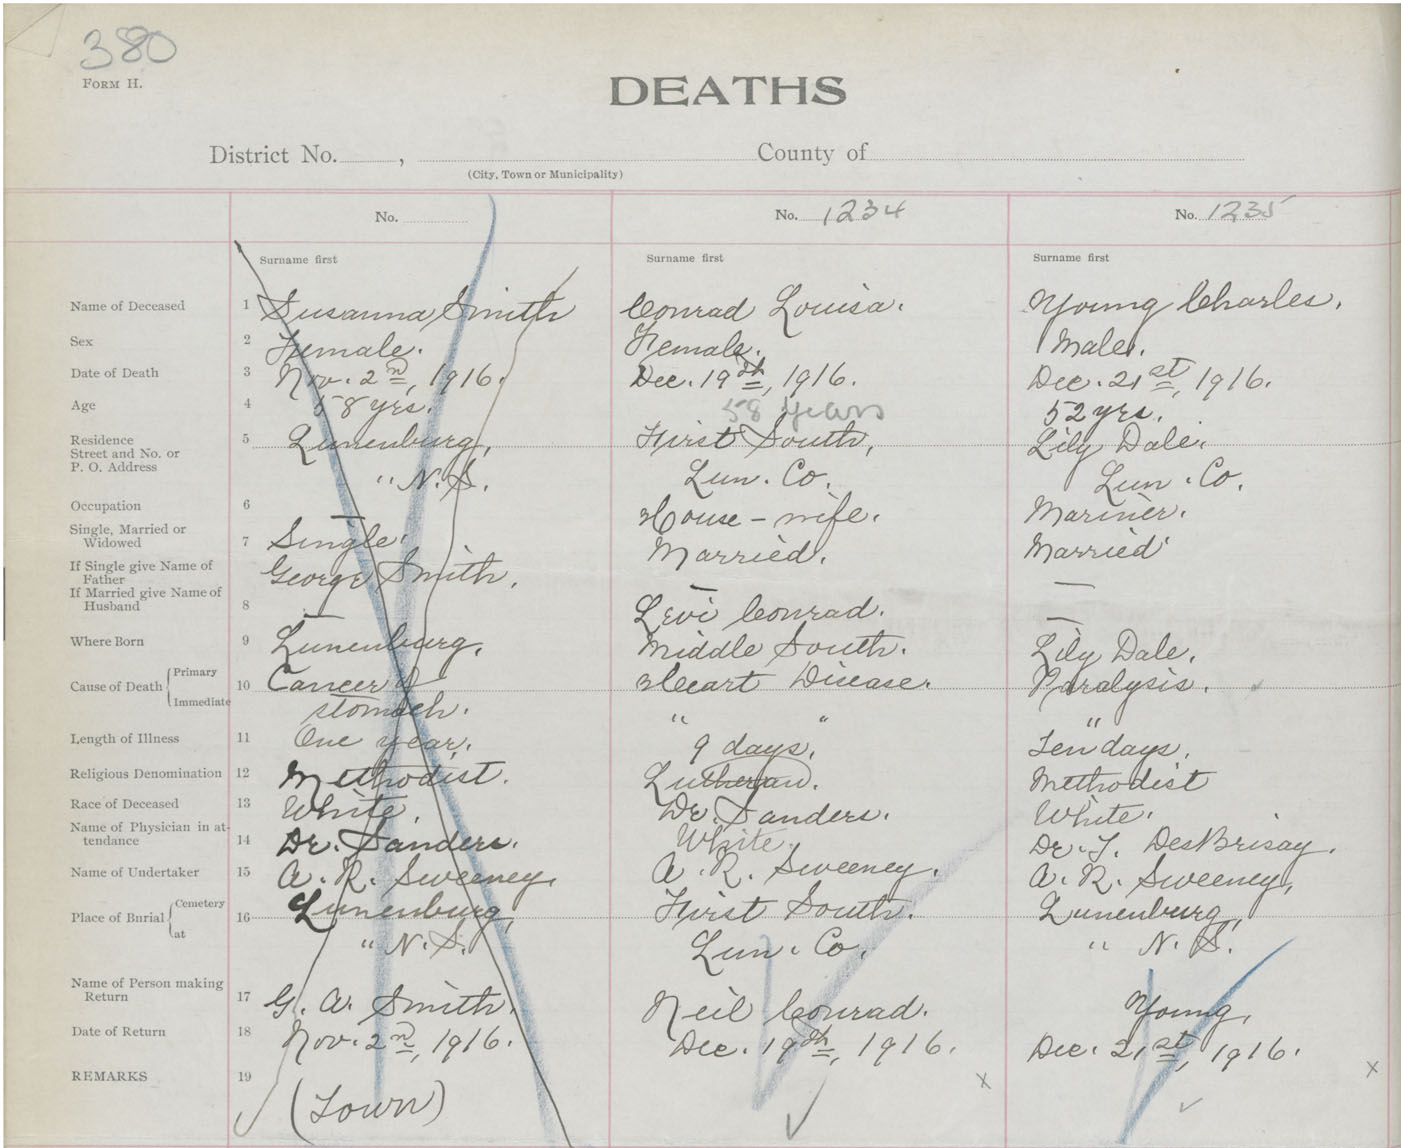 380
FORM II.
DEATHS
District No. , County of
(City, Town or Municipality)
No. No. 1234 No. 1235
Surname first Surname first Surname first
Name of Deceased 1 Susanna Smith Conrad Louisa. Young Charles.
Sex 2 Female. Female. Male.
Date of Death 3 Nov. 2nd, 1916. Dec. 19th, 1916. Dec. 21st, 1916.
Age 4 58 yrs. 58 years 52 yrs.
Residence Street and No. or P. O. Address 5 Lunenburg, First South, Lily Dale.
" N. S. Lun. Co. Lun. Co.
Occupation 6 — House-wife. Mariner.
Single, Married or Widowed 7 Single. Married. Married
If Single give Name of Father George Smith. — —
If Married give Name of Husband 8 — Levi Conrad. —
Where Born 9 Lunenburg. Middle South. Lily Dale.
Cause of Death { Primary Immediate 10 Cancer of Heart Disease. Paralysis.
stomach. " " "
Length of Illness 11 One year. 9 days. Ten days.
Religious Denomination 12 Methodist. Lutheran. Methodist
Race of Deceased 13 White. Dr. Sanders. White.
Name of Physician in attendance 14 Dr. Sanders. White. Dr. F. DesBrisay.
Name of Undertaker 15 A. R. Sweeney. A. R. Sweeney. A. R. Sweeney,
Place of Burial { Cemetery at 16 Lunenburg, First South. Lunenburg,
" N. S. Lun. Co. " N. S.
Name of Person making Return 17 G. A. Smith. Neil Conrad. Young.
Date of Return 18 Nov. 2nd, 1916. Dec. 19th, 1916. Dec. 21st, 1916.
REMARKS 19 (Town) x x